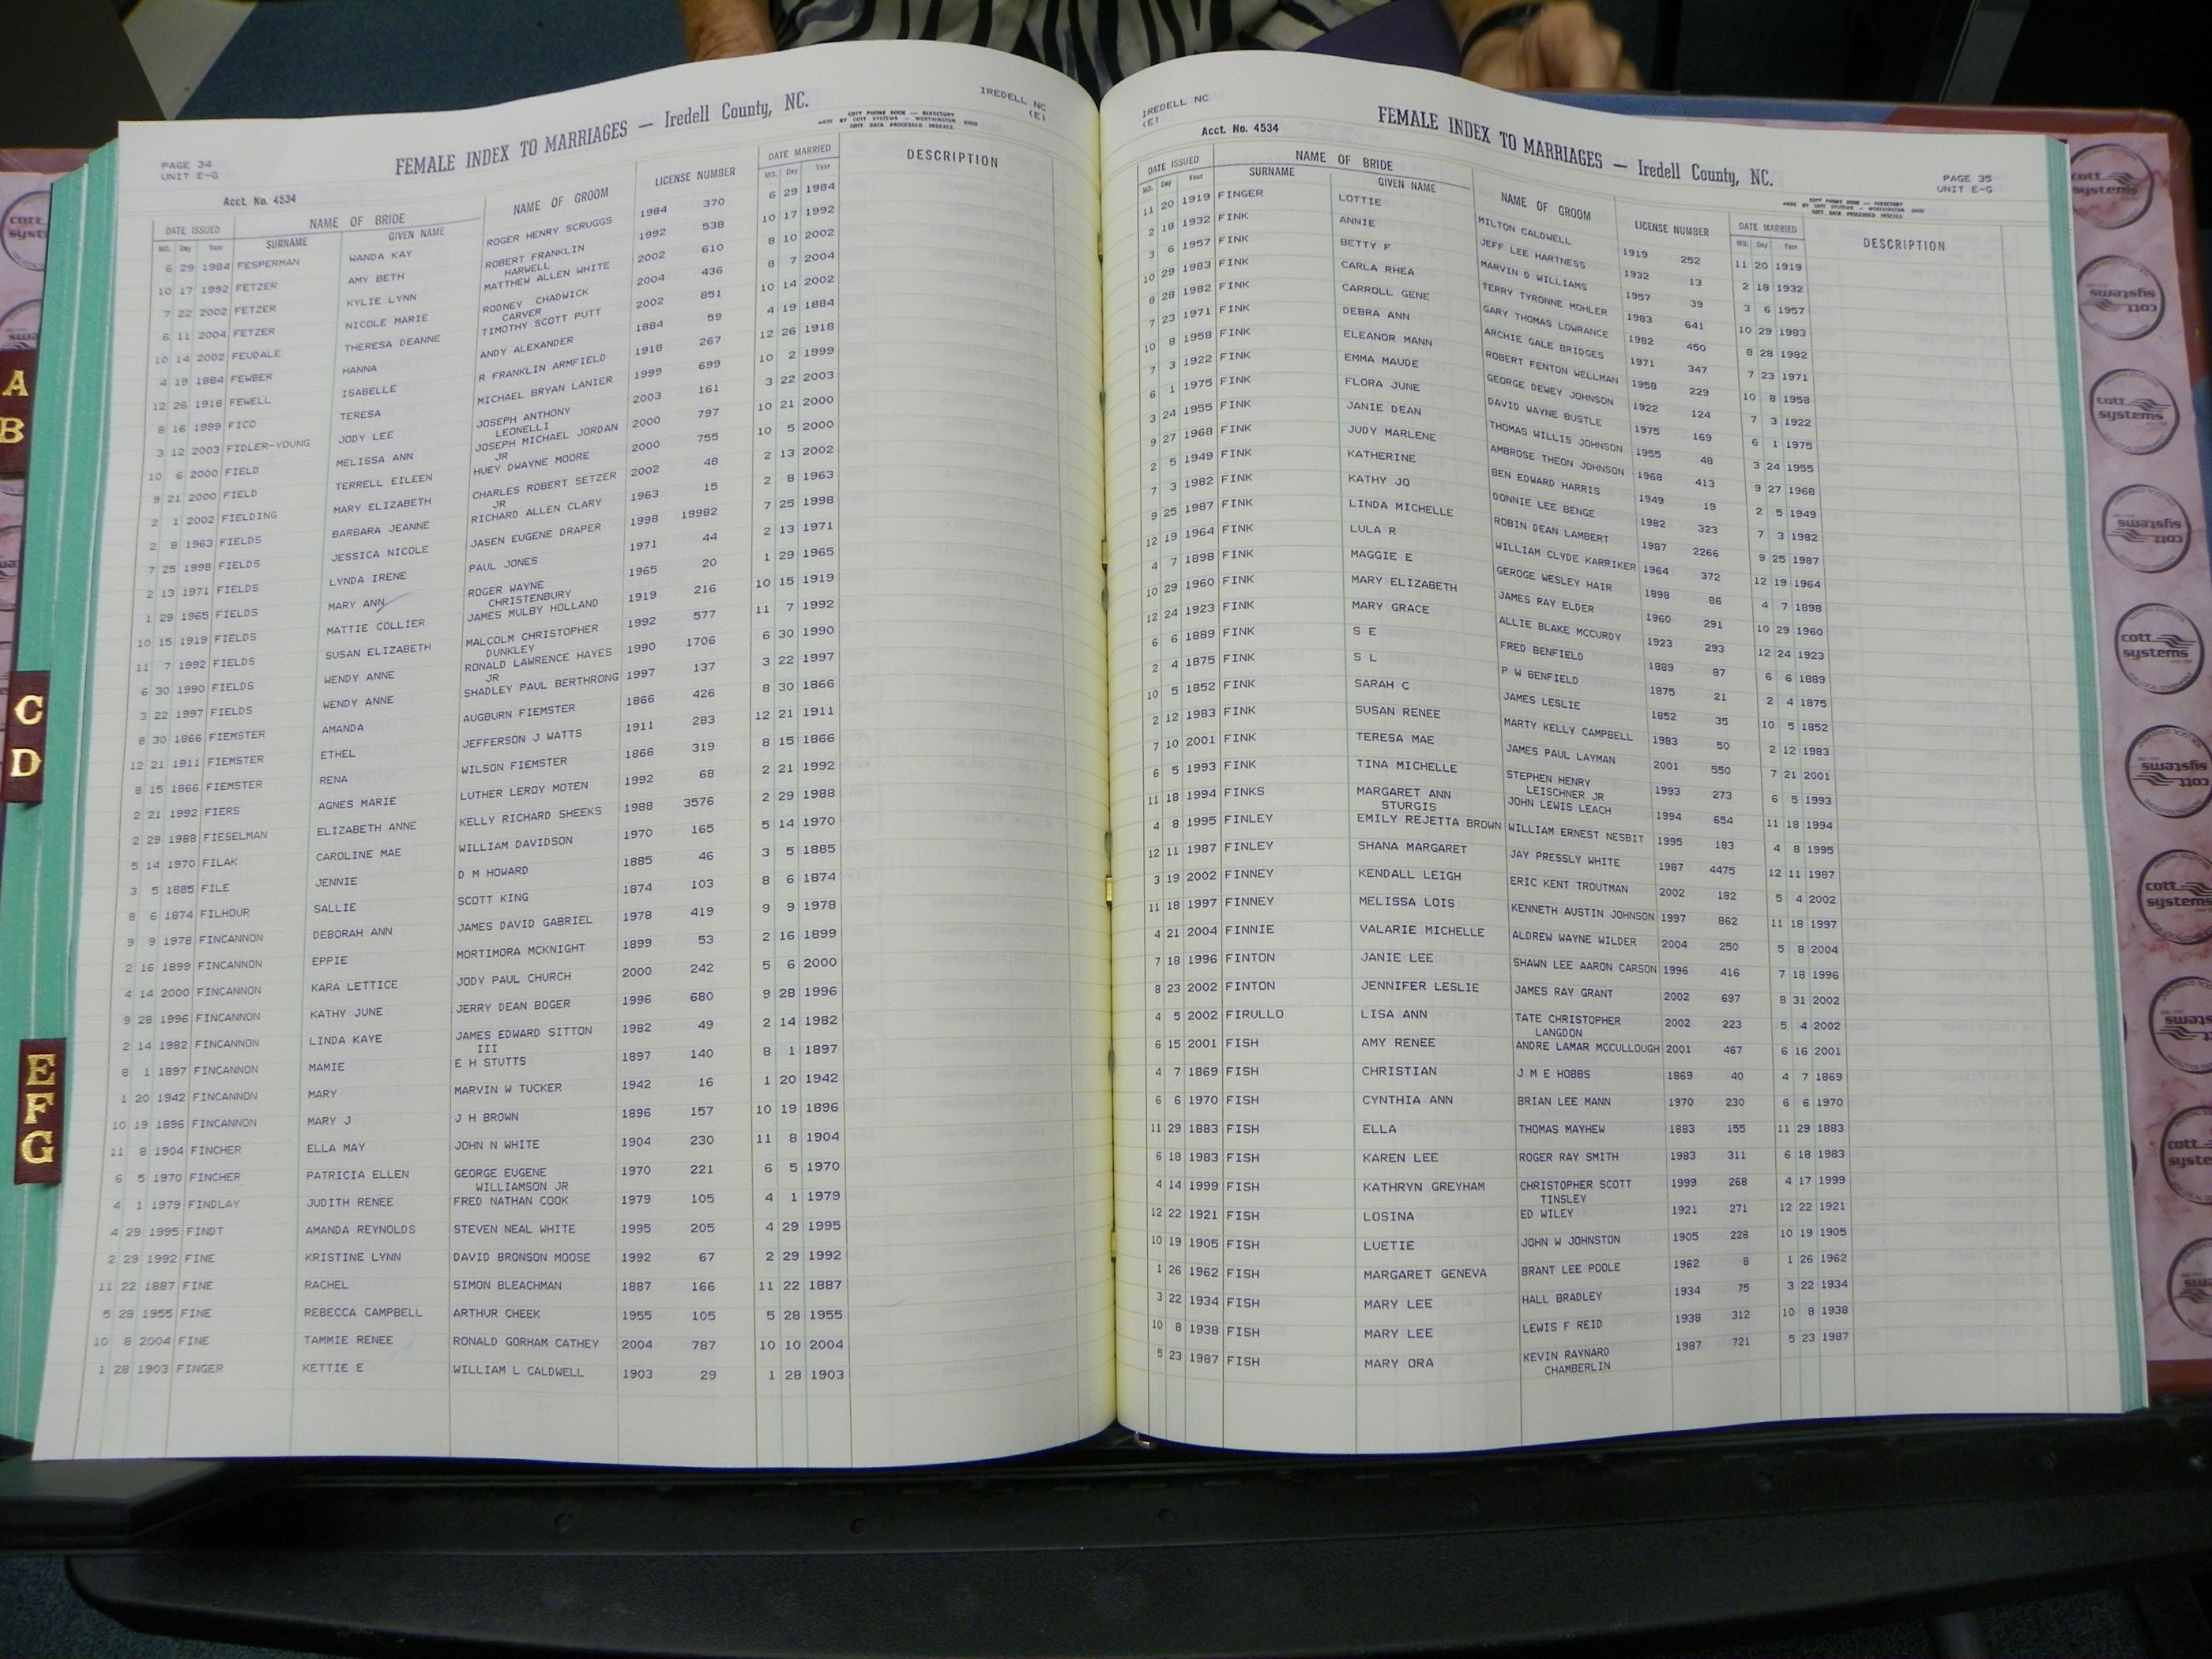 IREDELL NC
(E)
FEMALE INDEX TO MARRIAGES — Iredell County, NC.
COTT PHONE BOOK — DIRECTORY
MADE BY COTT SYSTEMS — WORTHINGTON OHIO
COTT DATA PROCESSED INDEXES
PAGE 34
UNIT E-G
Acct. No. 4534
DATE ISSUED NAME OF BRIDE NAME OF GROOM LICENSE NUMBER DATE MARRIED DESCRIPTION
MO. Day Year SURNAME GIVEN NAME MO. Day Year
6 29 1984 FESPERMAN WANDA KAY ROGER HENRY SCRUGGS 1984 370 6 29 1984
10 17 1992 FETZER AMY BETH ROBERT FRANKLIN 1992 538 10 17 1992
HARWELL
7 22 2002 FETZER KYLIE LYNN MATTHEW ALLEN WHITE 2002 610 8 10 2002
6 11 2004 FETZER NICOLE MARIE RODNEY CHADWICK 2004 436 8 7 2004
CARVER
10 14 2002 FEUDALE THERESA DEANNE TIMOTHY SCOTT PUTT 2002 851 10 14 2002
4 19 1884 FEWBER HANNA ANDY ALEXANDER 1884 59 4 19 1884
12 26 1918 FEWELL ISABELLE R FRANKLIN ARMFIELD 1918 267 12 26 1918
8 16 1999 FICO TERESA MICHAEL BRYAN LANIER 1999 699 10 2 1999
3 12 2003 FIDLER-YOUNG JODY LEE JOSEPH ANTHONY 2003 161 3 22 2003
LEONELLI
10 6 2000 FIELD MELISSA ANN JOSEPH MICHAEL JORDAN 2000 797 10 21 2000
JR
9 21 2000 FIELD TERRELL EILEEN HUEY DWAYNE MOORE 2000 755 10 5 2000
2 1 2002 FIELDING MARY ELIZABETH CHARLES ROBERT SETZER 2002 48 2 13 2002
JR
2 8 1963 FIELDS BARBARA JEANNE RICHARD ALLEN CLARY 1963 15 2 8 1963
7 25 1998 FIELDS JESSICA NICOLE JASEN EUGENE DRAPER 1998 19982 7 25 1998
2 13 1971 FIELDS LYNDA IRENE PAUL JONES 1971 44 2 13 1971
1 29 1965 FIELDS MARY ANN ROGER WAYNE 1965 20 1 29 1965
CHRISTENBURY
10 15 1919 FIELDS MATTIE COLLIER JAMES MULBY HOLLAND 1919 216 10 15 1919
11 7 1992 FIELDS SUSAN ELIZABETH MALCOLM CHRISTOPHER 1992 577 11 7 1992
DUNKLEY
6 30 1990 FIELDS WENDY ANNE RONALD LAWRENCE HAYES 1990 1706 6 30 1990
JR
3 22 1997 FIELDS WENDY ANNE SHADLEY PAUL BERTHRONG 1997 137 3 22 1997
8 30 1866 FIEMSTER AMANDA AUGBURN FIEMSTER 1866 426 8 30 1866
12 21 1911 FIEMSTER ETHEL JEFFERSON J WATTS 1911 283 12 21 1911
8 15 1866 FIEMSTER RENA WILSON FIEMSTER 1866 319 8 15 1866
2 21 1992 FIERS AGNES MARIE LUTHER LEROY MOTEN 1992 68 2 21 1992
2 29 1988 FIESELMAN ELIZABETH ANNE KELLY RICHARD SHEEKS 1988 3576 2 29 1988
5 14 1970 FILAK CAROLINE MAE WILLIAM DAVIDSON 1970 165 5 14 1970
3 5 1885 FILE JENNIE D M HOWARD 1885 46 3 5 1885
8 6 1874 FILHOUR SALLIE SCOTT KING 1874 103 8 6 1874
9 9 1978 FINCANNON DEBORAH ANN JAMES DAVID GABRIEL 1978 419 9 9 1978
2 16 1899 FINCANNON EPPIE MORTIMORA MCKNIGHT 1899 53 2 16 1899
4 14 2000 FINCANNON KARA LETTICE JODY PAUL CHURCH 2000 242 5 6 2000
9 28 1996 FINCANNON KATHY JUNE JERRY DEAN BOGER 1996 680 9 28 1996
2 14 1982 FINCANNON LINDA KAYE JAMES EDWARD SITTON 1982 49 2 14 1982
III
8 1 1897 FINCANNON MAMIE E H STUTTS 1897 140 8 1 1897
1 20 1942 FINCANNON MARY MARVIN W TUCKER 1942 16 1 20 1942
10 19 1896 FINCANNON MARY J J H BROWN 1896 157 10 19 1896
11 8 1904 FINCHER ELLA MAY JOHN N WHITE 1904 230 11 8 1904
6 5 1970 FINCHER PATRICIA ELLEN GEORGE EUGENE 1970 221 6 5 1970
WILLIAMSON JR
4 1 1979 FINDLAY JUDITH RENEE FRED NATHAN COOK 1979 105 4 1 1979
4 29 1995 FINDT AMANDA REYNOLDS STEVEN NEAL WHITE 1995 205 4 29 1995
2 29 1992 FINE KRISTINE LYNN DAVID BRONSON MOOSE 1992 67 2 29 1992
11 22 1887 FINE RACHEL SIMON BLEACHMAN 1887 166 11 22 1887
5 28 1955 FINE REBECCA CAMPBELL ARTHUR CHEEK 1955 105 5 28 1955
10 8 2004 FINE TAMMIE RENEE RONALD GORHAM CATHEY 2004 787 10 10 2004
1 28 1903 FINGER KETTIE E WILLIAM L CALDWELL 1903 29 1 28 1903
IREDELL NC
(E)
Acct. No. 4534
FEMALE INDEX TO MARRIAGES — Iredell County, NC.
PAGE 35
UNIT E-G
COTT PHONE BOOK — DIRECTORY
MADE BY COTT SYSTEMS — WORTHINGTON OHIO
COTT DATA PROCESSED INDEXES
DATE ISSUED NAME OF BRIDE NAME OF GROOM LICENSE NUMBER DATE MARRIED DESCRIPTION
MO. Day Year SURNAME GIVEN NAME MO. Day Year
11 20 1919 FINGER LOTTIE MILTON CALDWELL 1919 252 11 20 1919
2 18 1932 FINK ANNIE JEFF LEE HARTNESS 1932 13 2 18 1932
3 6 1957 FINK BETTY F MARVIN D WILLIAMS 1957 39 3 6 1957
10 29 1983 FINK CARLA RHEA TERRY TYRONNE MOHLER 1983 641 10 29 1983
8 28 1982 FINK CARROLL GENE GARY THOMAS LOWRANCE 1982 450 8 28 1982
7 23 1971 FINK DEBRA ANN ARCHIE GALE BRIDGES 1971 347 7 23 1971
10 8 1958 FINK ELEANOR MANN ROBERT FENTON WELLMAN 1958 229 10 8 1958
7 3 1922 FINK EMMA MAUDE GEORGE DEWEY JOHNSON 1922 124 7 3 1922
6 1 1975 FINK FLORA JUNE DAVID WAYNE BUSTLE 1975 169 6 1 1975
3 24 1955 FINK JANIE DEAN THOMAS WILLIS JOHNSON 1955 48 3 24 1955
9 27 1968 FINK JUDY MARLENE AMBROSE THEON JOHNSON 1968 413 9 27 1968
2 5 1949 FINK KATHERINE BEN EDWARD HARRIS 1949 19 2 5 1949
7 3 1982 FINK KATHY JO DONNIE LEE BENGE 1982 323 7 3 1982
9 25 1987 FINK LINDA MICHELLE ROBIN DEAN LAMBERT 1987 2266 9 25 1987
12 19 1964 FINK LULA R WILLIAM CLYDE KARRIKER 1964 372 12 19 1964
4 7 1898 FINK MAGGIE E GERODGE WESLEY HAIR 1898 86 4 7 1898
10 29 1960 FINK MARY ELIZABETH JAMES RAY ELDER 1960 291 10 29 1960
12 24 1923 FINK MARY GRACE ALLIE BLAKE MCCURDY 1923 293 12 24 1923
6 6 1889 FINK S E FRED BENFIELD 1889 87 6 6 1889
2 4 1875 FINK S L P W BENFIELD 1875 21 2 4 1875
10 5 1852 FINK SARAH C JAMES LESLIE 1852 35 10 5 1852
2 12 1983 FINK SUSAN RENEE MARTY KELLY CAMPBELL 1983 50 2 12 1983
7 10 2001 FINK TERESA MAE JAMES PAUL LAYMAN 2001 550 7 21 2001
6 5 1993 FINK TINA MICHELLE STEPHEN HENRY 1993 273 6 5 1993
LEISCHNER JR
11 18 1994 FINKS MARGARET ANN JOHN LEWIS LEACH 1994 654 11 18 1994
STURGIS
4 8 1995 FINLEY EMILY REJETTA BROWN WILLIAM ERNEST NESBIT 1995 183 4 8 1995
12 11 1987 FINLEY SHANA MARGARET JAY PRESSLY WHITE 1987 4475 12 11 1987
3 19 2002 FINNEY KENDALL LEIGH ERIC KENT TROUTMAN 2002 182 5 4 2002
11 18 1997 FINNEY MELISSA LOIS KENNETH AUSTIN JOHNSON 1997 862 11 18 1997
4 21 2004 FINNIE VALARIE MICHELLE ALDREW WAYNE WILDER 2004 250 5 8 2004
7 18 1996 FINTON JANIE LEE SHAWN LEE AARON CARSON 1996 416 7 18 1996
8 23 2002 FINTON JENNIFER LESLIE JAMES RAY GRANT 2002 697 8 31 2002
4 5 2002 FIRULLO LISA ANN TATE CHRISTOPHER 2002 223 5 4 2002
LANGDON
6 15 2001 FISH AMY RENEE ANDRE LAMAR MCCULLOUGH 2001 467 6 16 2001
4 7 1869 FISH CHRISTIAN J M E HOBBS 1869 40 4 7 1869
6 6 1970 FISH CYNTHIA ANN BRIAN LEE MANN 1970 230 6 6 1970
11 29 1883 FISH ELLA THOMAS MAYHEW 1883 155 11 29 1883
6 18 1983 FISH KAREN LEE ROGER RAY SMITH 1983 311 6 18 1983
4 14 1999 FISH KATHRYN GREYHAM CHRISTOPHER SCOTT 1999 268 4 17 1999
TINSLEY
12 22 1921 FISH LOSINA ED WILEY 1921 271 12 22 1921
10 19 1905 FISH LUETIE JOHN W JOHNSTON 1905 228 10 19 1905
1 26 1962 FISH MARGARET GENEVA BRANT LEE POOLE 1962 8 1 26 1962
3 22 1934 FISH MARY LEE HALL BRADLEY 1934 75 3 22 1934
10 8 1938 FISH MARY LEE LEWIS F REID 1938 312 10 8 1938
5 23 1987 FISH MARY ORA KEVIN RAYNARD 1987 721 5 23 1987
CHAMBERLIN
A
B
C
D
E
F
G
cott
systems